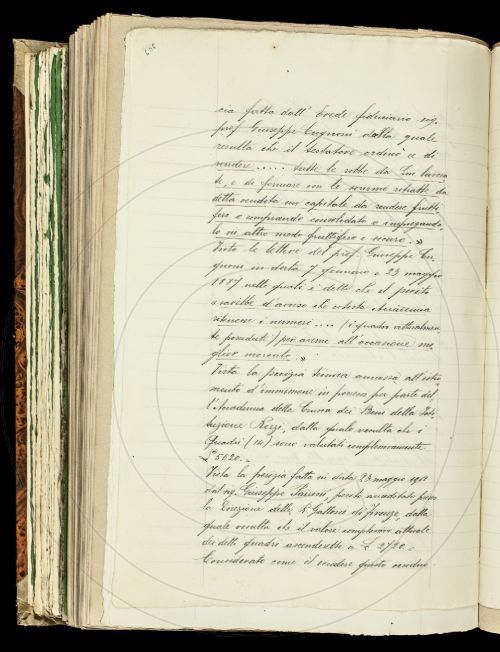 cia fatta dall' Erede fiduciario sig.
prof. Giuseppe Cugnoni dalla quale
risulta che il testatore ordinò « di
vendere ..... tutte le robbe da lui lascia
te, e di formare con le somme ritratte da
detta vendita un capitale da rendere frutti
fero o comprando consolidato o impiegando
lo in altro modo fruttifero e sicuro. »
Viste le lettere del prof. Giuseppe Cu
gnoni in data 7 gennaio e 23 maggio
1887 nelle quali è detto che il perito
« sarebbe d'avviso che codesta Accademia
ritenesse i numeri .... (i quadri attualmen
te posseduti) per averne all'occasione mi
glior mercato. »
Vista la perizia annessa all'istru
mento d'immissione in possesso per parte del
l'Accademia della Crusca dei Beni della Isti
tuzione Rezzi, dalla quale risulta che i
Quadri (14) sono valutati complessivamente
£ 5620. =
Vista la perizia fatta in data 23 maggio 1911
dal sig. Giuseppe Parrini, perito accreditato presso
la Direzione delle R. Gallerie di Firenze, dalla
quale risulta che il valore complessivo attuale
dei detti quadri ascenderebbe a £ 2720. =
Considerato come il vendere questo residuo